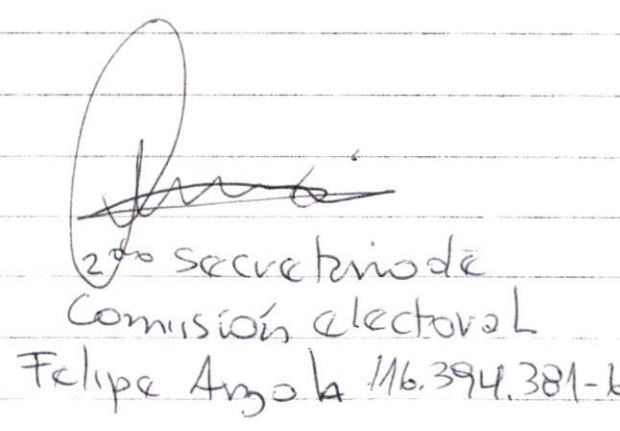 2do Secretario de
Comisión electoral
Felipe Anzola 116.394.381-